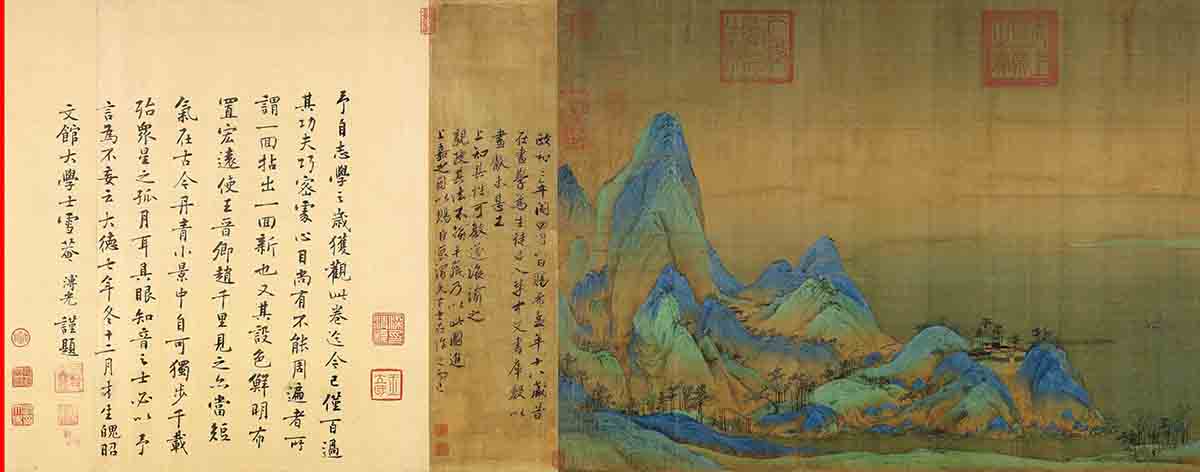 政和三年閏四月八日賜希孟年十八歲昔
在畫學為生徒召入禁中文書庫數以
畫獻未甚工
上知其性可教遂誨諭之
親授其法不踰半歲乃以此圖進
上嘉之因以賜臣京謂天下士在作之而已
予自志學之歲獲觀此卷迄今已僅百過
其功夫巧密處心目尚有不能周遍者所
謂一回拈出一回新也又其設色鮮明布
置宏遠使王晉卿趙千里見之亦當短
氣在古今丹青小景中自可獨步千載
殆眾星之孤月耳具眼知音之士必以予
言為不妄云大德七年冬十二月才生魄昭
文館大學士雪菴溥光謹題